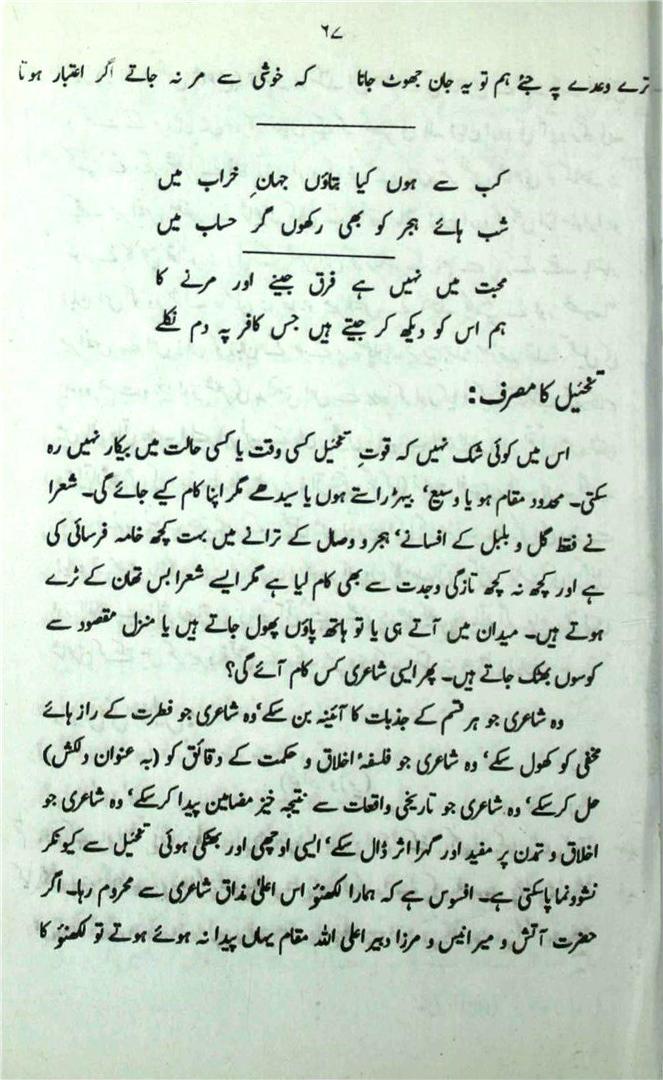 ۶۷
ترے وعدے پہ جئے ہم تو یہ جان جھوٹ جانا کہ خوشی سے مر نہ جاتے اگر اعتبار ہوتا
کب سے ہوں کیا بتاؤں جہانِ خراب میں
شب ہائے ہجر کو بھی رکھوں گر حساب میں
محبت میں نہیں ہے فرق جینے اور مرنے کا
ہم اس کو دیکھ کر جیتے ہیں جس کافر پہ دم نکلے
تخئیل کا مصرف:
اس میں کوئی شک نہیں کہ قوتِ تخئیل کسی وقت یا کسی حالت میں بیکار نہیں رہ
سکتی۔ محدود مقام ہو یا وسیع، بیہڑ راستے ہوں یا سیدھے مگر اپنا کام کیے جائے گی۔ شعرا
نے فقط گل و بلبل کے افسانے، ہجر و وصال کے ترانے میں بہت کچھ خامہ فرسائی کی
ہے اور کچھ نہ کچھ تازگی وجدت سے بھی کام لیا ہے مگر ایسے شعرا بس تھان کے ٹرے
ہوتے ہیں۔ میدان میں آتے ہی یا تو ہاتھ پاؤں پھول جاتے ہیں یا منزل مقصود سے
کوسوں بھٹک جاتے ہیں۔ پھر ایسی شاعری کس کام آئے گی؟
وہ شاعری جو ہر قسم کے جذبات کا آئینہ بن سکے، وہ شاعری جو فطرت کے راز ہائے
مخفی کو کھول سکے، وہ شاعری جو فلسفۂ اخلاق و حکمت کے دقائق کو (بہ عنوان دلکش)
حل کر سکے، وہ شاعری جو تاریخی واقعات سے نتیجہ خیز مضامین پیدا کر سکے، وہ شاعری جو
اخلاق و تمدن پر مفید اور گہرا اثر ڈال سکے، ایسی اوچھی اور بھٹکی ہوئی تخئیل سے کیونکر
نشوونما پا سکتی ہے۔ افسوس ہے کہ ہمارا لکھنؤ اس اعلیٰ مذاق شاعری سے محروم رہا۔ اگر
حضرت آتش و میر انیس و مرزا دبیر اعلی اللہ مقام یہاں پیدا نہ ہوئے ہوتے تو لکھنؤ کا